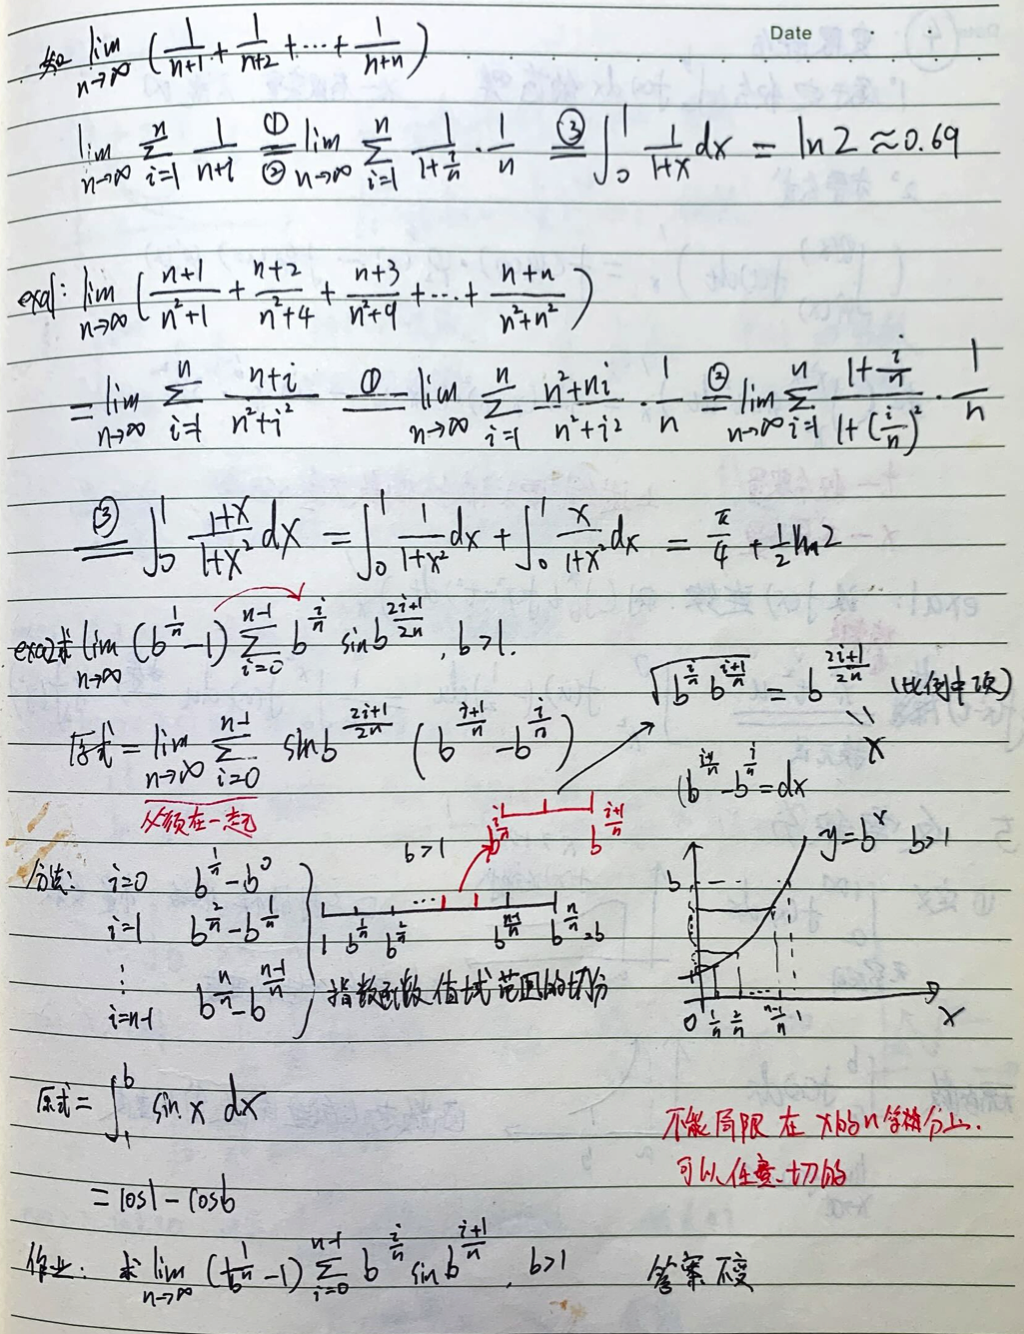 Date
如 lim n→∞ (1/(n+1) + 1/(n+2) + ··· + 1/(n+n))
lim n→∞ Σ i=1 n 1/(n+i) ①=② lim n→∞ Σ i=1 n 1/(1+i/n) · 1/n ③= ∫₀¹ 1/(1+x) dx = ln2 ≈ 0.69
exa1: lim n→∞ ((n+1)/(n²+1) + (n+2)/(n²+4) + (n+3)/(n²+9) + ··· + (n+n)/(n²+n²))
= lim n→∞ Σ i=1 n (n+i)/(n²+i²) ①= lim n→∞ Σ i=1 n (n²+ni)/(n²+i²) · 1/n ②= lim n→∞ Σ i=1 n (1+i/n)/(1+(i/n)²) · 1/n
③= ∫₀¹ (1+x)/(1+x²) dx = ∫₀¹ 1/(1+x²) dx + ∫₀¹ x/(1+x²) dx = π/4 + 1/2 ln2
exa2 求 lim n→∞ (b^(1/n) -1) Σ i=0 n-1 b^(i/n) sin b^((2i+1)/2n) , b>1.
√(b^(i/n) b^((i+1)/n)) = b^((2i+1)/2n) (比例中项)
x
原式 = lim n→∞ Σ i=0 n-1 sin b^((2i+1)/2n) (b^((i+1)/n) - b^(i/n))
(b^((i+1)/n) - b^(i/n) = dx
必须在一起
b^(i/n) b^((i+1)/n)
b>1
y=b^x b>1
方法: i=0 b^(1/n) - b^0
i=1 b^(2/n) - b^(1/n)
⋮
i=n-1 b^(n/n) - b^((n-1)/n)
1 b^(1/n) b^(2/n) ··· b^((n-1)/n) b^(n/n)=b
指数函数值域范围的切分
b
0 1/n 2/n ··· (n-1)/n 1 x
原式 = ∫₁ᵇ sin x dx
不能局限在x的n等份上.
可以任意切的
= cos1 - cosb
作业: 求 lim n→∞ (b^(1/n) -1) Σ i=0 n-1 b^(i/n) sin b^((i+1)/n) , b>1 答案不变